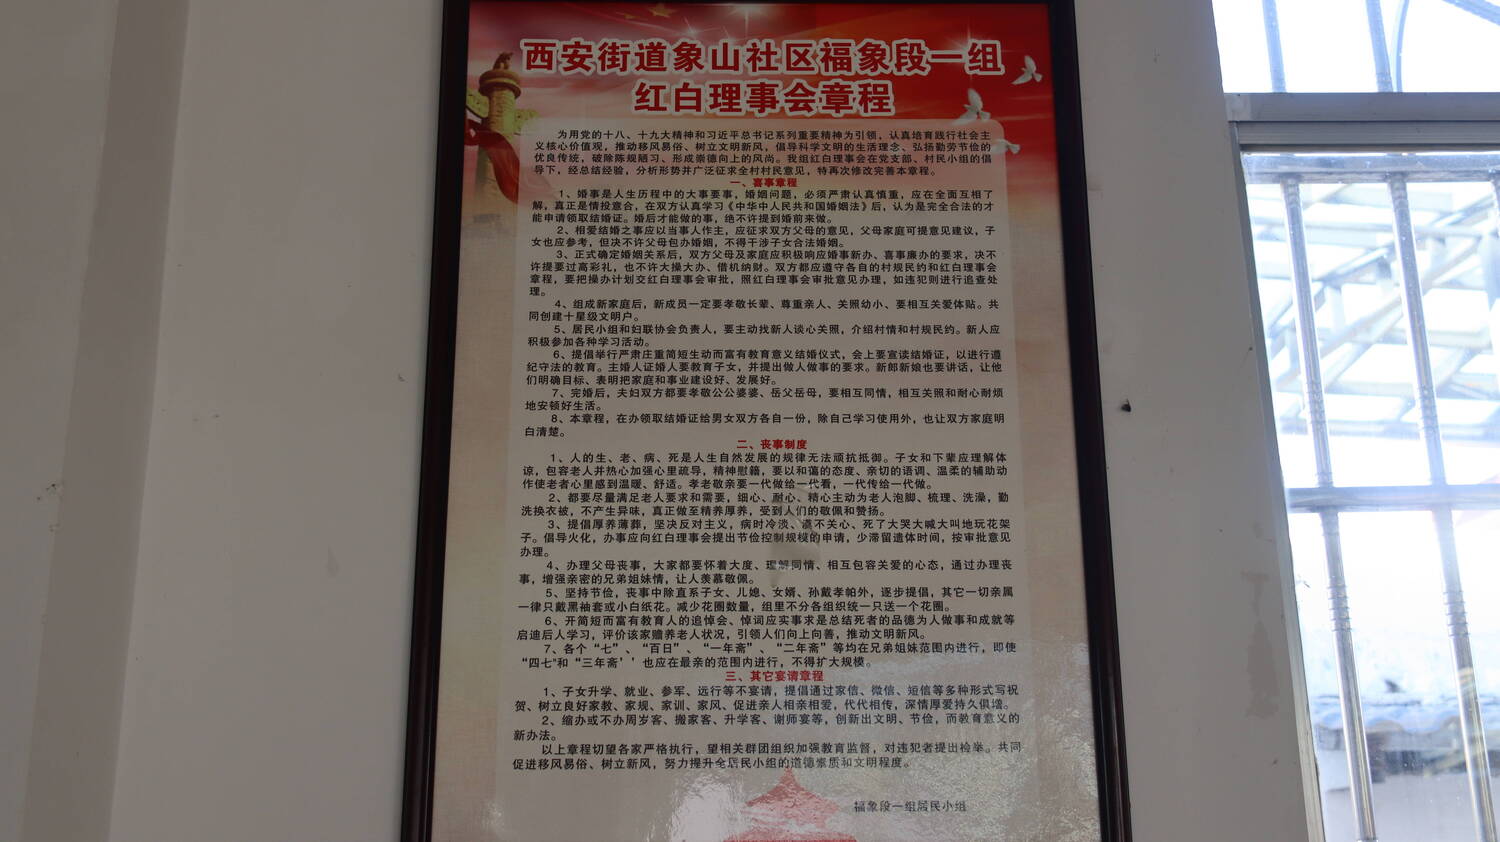 西安街道象山社区福象段一组
红白理事会章程
为用党的十八、十九大精神和习近平总书记系列重要精神为引领，认真培育践行社会主
义核心价值观，推动移风易俗、树立文明新风，倡导科学文明的生活理念、弘扬勤劳节俭的
优良传统，破除陈规陋习、形成崇德向上的风尚。我组红白理事会在党支部、村民小组的倡
导下，经总结经验，分析形势并广泛征求全村村民意见，特再次修改完善本章程。
一、喜事章程
1、婚事是人生历程中的大事要事，婚姻问题，必须严肃认真慎重，应在全面互相了
解，真正是情投意合，在双方认真学习《中华中人民共和国婚姻法》后，认为是完全合法的才
能申请领取结婚证。婚后才能做的事，绝不许提到婚前来做。
2、相爱结婚之事应以当事人作主，应征求双方父母的意见，父母家庭可提意见建议，子
女也应参考，但决不许父母包办婚姻，不得干涉子女合法婚姻。
3、正式确定婚姻关系后，双方父母及家庭应积极响应婚事新办、喜事廉办的要求，决不
许提要过高彩礼，也不许大操大办、借机纳财。双方都应遵守各自的村规民约和红白理事会
章程，要把操办计划交红白理事会审批，照红白理事会审批意见办理，如违犯则进行追查处
理。
4、组成新家庭后，新成员一定要孝敬长辈、尊重亲人、关照幼小、要相互关爱体贴。共
同创建十星级文明户。
5、居民小组和妇联协会负责人，要主动找新人谈心关照，介绍村情和村规民约。新人应
积极参加各种学习活动。
6、提倡举行严肃庄重简短生动而富有教育意义结婚仪式，会上要宣读结婚证，以进行遵
纪守法的教育。主婚人证婚人要教育子女，并提出做人做事的要求。新郎新娘也要讲话，让他
们明确目标、表明把家庭和事业建设好、发展好。
7、完婚后，夫妇双方都要孝敬公公婆婆、岳父岳母，要相互同情，相互关照和耐心耐烦
地安顿好生活。
8、本章程，在办领取结婚证给男女双方各自一份，除自己学习使用外，也让双方家庭明
白清楚。
二、丧事制度
1、人的生、老、病、死是人生自然发展的规律无法顽抗抵御。子女和下辈应理解体
谅，包容老人并热心加强心里疏导，精神慰籍，要以和蔼的态度、亲切的语调、温柔的辅助动
作使老者心里感到温暖、舒适。孝老敬亲要一代做给一代看，一代传给一代做。
2、都要尽量满足老人要求和需要，细心、耐心、精心主动为老人泡脚、梳理、洗澡，勤
洗换衣被，不产生异味，真正做至精养厚养，受到人们的敬佩和赞扬。
3、提倡厚养薄葬，坚决反对主义，病时冷淡、漠不关心、死了大哭大喊大叫地玩花架
子。倡导火化，办事应向红白理事会提出节俭控制规模的申请，少滞留遗体时间，按审批意见
办理。
4、办理父母丧事，大家都要怀着大度、理解同情、相互包容关爱的心态，通过办理丧
事，增强亲密的兄弟姐妹情，让人羡慕敬佩。
5、坚持节俭，丧事中除直系子女、儿媳、女婿、孙戴孝帕外，逐步提倡，其它一切亲属
一律只戴黑袖套或小白纸花。减少花圈数量，组里不分各组织统一只送一个花圈。
6、开简短而富有教育人的追悼会、悼词应实事求是总结死者的品德为人做事和成就等
启迪后人学习，评价该家赡养老人状况，引领人们向上向善，推动文明新风。
7、各个“七”、“百日”、“一年斋”、“二年斋”等均在兄弟姐妹范围内进行，即使
“四七"和“三年斋’’也应在最亲的范围内进行，不得扩大规模。
三、其它宴请章程
1、子女升学、就业、参军、远行等不宴请，提倡通过家信、微信、短信等多种形式写祝
贺、树立良好家教、家规、家训、家风、促进亲人相亲相爱，代代相传，深情厚爱持久俱增。
2、缩办或不办周岁客、搬家客、升学客、谢师宴等，创新出文明、节俭，而教育意义的
新办法。
以上章程切望各家严格执行，望相关群团组织加强教育监督，对违犯者提出检举。共同
促进移风易俗、树立新风，努力提升全居民小组的道德素质和文明程度。
福象段一组居民小组